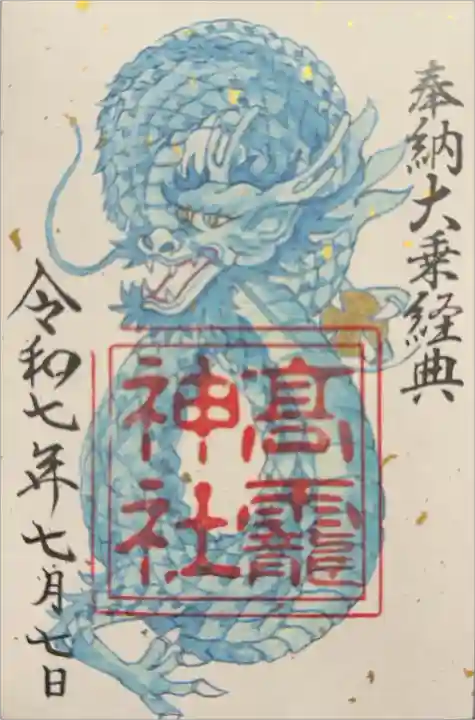 奉納大乗経典
髙龗
神社
令和七年七月七日